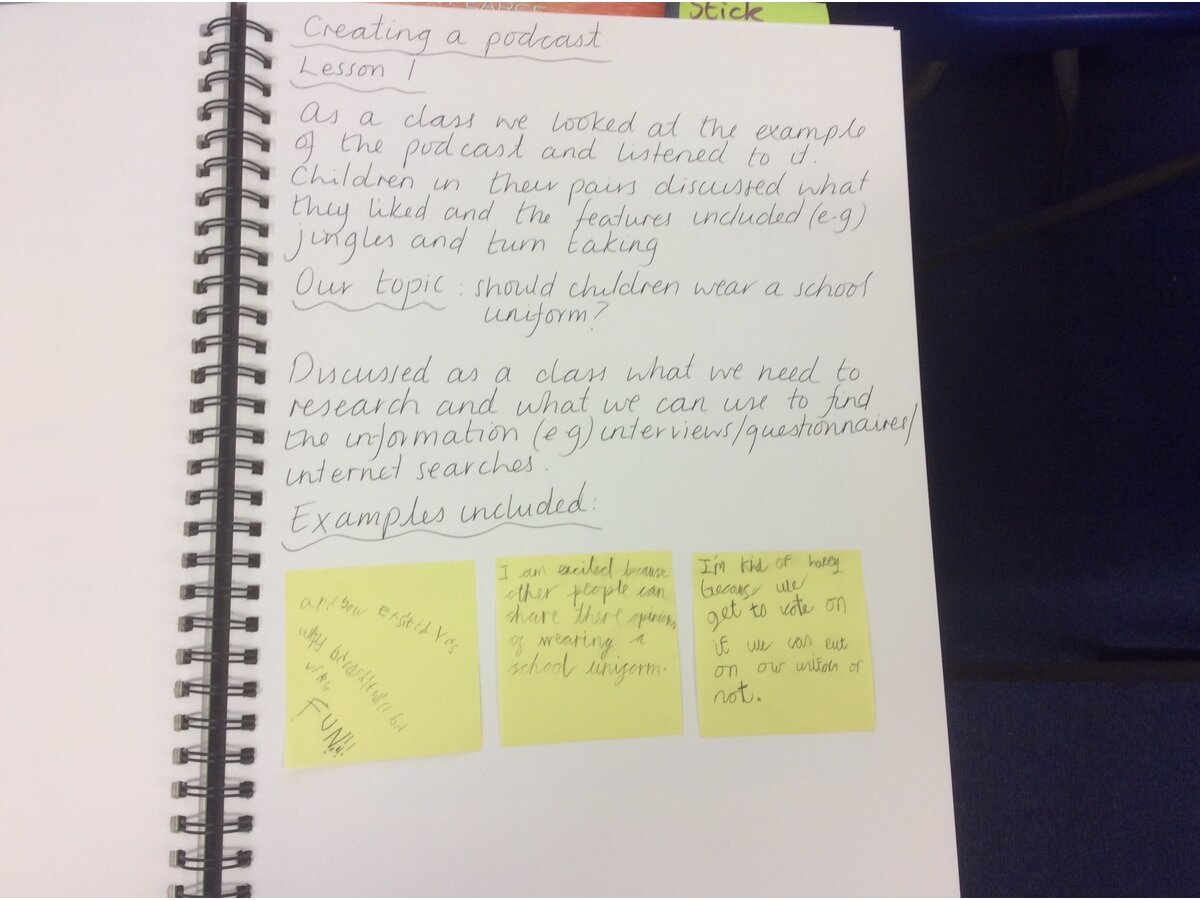 PEARCE
Stick
Creating a podcast
Lesson 1
As a class we looked at the example
of the podcast and listened to it.
Children in their pairs discussed what
they liked and the features included (e-g)
jingles and turn taking
Our topic : should children wear a school
uniform?
Discussed as a class what we need to
research and what we can use to find
the information (e g) interviews/questionnaires/
internet searches.
Examples included:
why
FUN!!!
I am excited because
other people can
share there opinions
of wearing a
school uniform.
I'm kid of happy
because we
get to vote on
if we can put
on our unifom or
not.